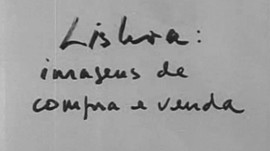 Lisboa:
imagens de
compra e venda